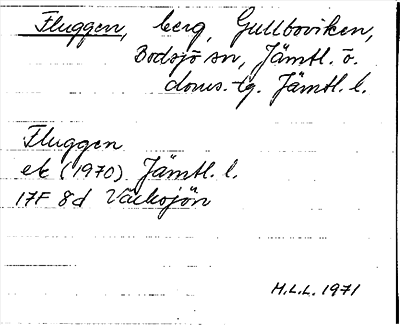 Fluggen, berg, Gullboviken,
Bodsjö sn, Jämtl. ö.
doms.-tg. Jämtl. l.
Fluggen
ek (1970) Jämtl. l.
17F 8d Väcksjön
H.L.L. 1971